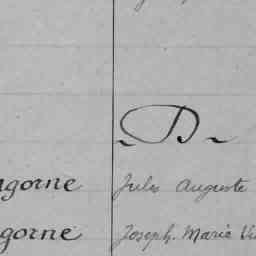 ~ D ~
gorne Jules Auguste
gorne Joseph. Marie